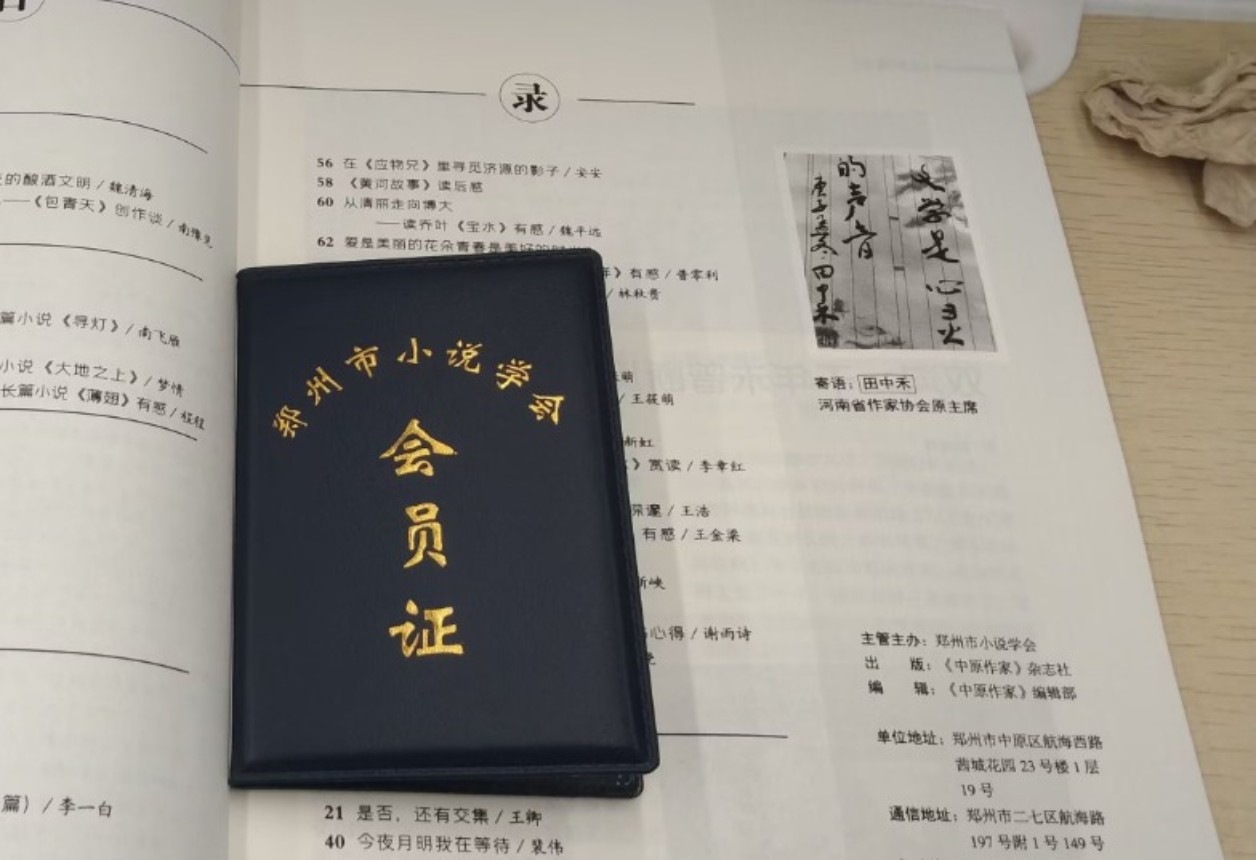 的酿酒文明 / 魏清海
——《包青天》创作谈 / 南豫见
篇小说《寻灯》/ 南飞雁
小说《大地之上》/ 梦情
长篇小说《薄翅》有感 / 程程
篇）/ 李一白
录
56 在《应物兄》里寻觅济源的影子 / 安安
58 《黄河故事》读后感
60 从清丽走向博大
——读乔叶《宝水》有感 / 魏平远
62 爱是美丽的花朵青春是美好的时光
年》有感 / 鲁零利
/ 林秋贵
萌
/ 王筱萌
新虹
》赏读 / 李章红
深邃 / 王浩
有感 / 王金梁
新峡
心得 / 谢雨诗
21 是否，还有交集 / 王卿
40 今夜月明我在等待 / 裴伟
郑州市小说学会
会
员
证
文学是心灵
的声音
庚子孟冬田中禾
寄语：田中禾
河南省作家协会原主席
主管主办：郑州市小说学会
出 版：《中原作家》杂志社
编 辑：《中原作家》编辑部
单位地址：郑州市中原区航海西路
茜城花园 23 号楼 1 层
19 号
通信地址：郑州市二七区航海路
197 号附 1 号 149 号